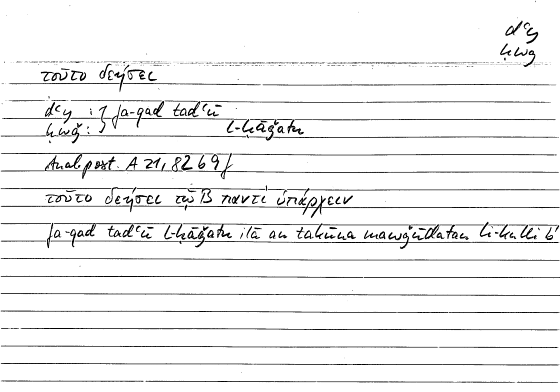 dʿy
ḥwǧ
τοῦτο δεήσει
dʿy : } fa-qad tadʿū
ḥwǧ : } l-ḥāǧatu
Anal. post. A 21, 82 b 9 f
τοῦτο δεήσει τῷ B παντὶ ὑπάρχειν
fa-qad tadʿū l-ḥāǧatu ilā an takūna mawǧūdatan li-kulli b